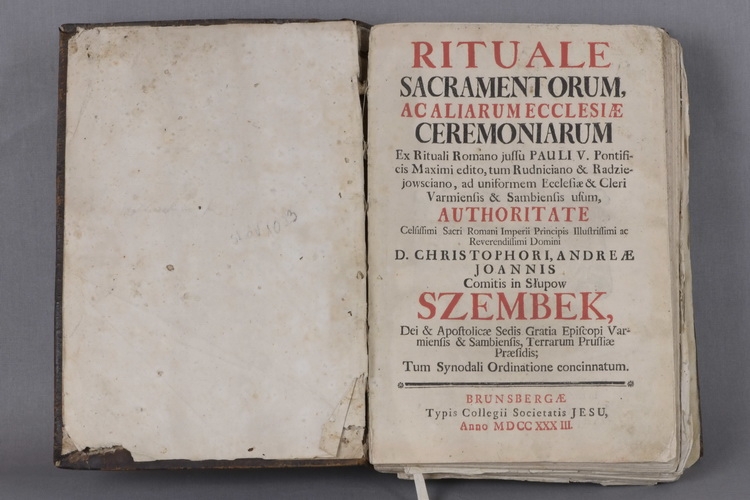 RITUALE
SACRAMENTORUM,
AC ALIARUM ECCLESIÆ
CEREMONIARUM
Ex Rituali Romano jussu PAULI V. Pontifi-
cis Maximi edito, tum Rudniciano & Radzie-
jowsciano, ad uniformem Ecclesiæ & Cleri
Varmiensis & Sambiensis usum,
AUTHORITATE
Celsissimi Sacri Romani Imperii Principis Illustrissimi ac
Reverendissimi Domini
D. CHRISTOPHORI, ANDREÆ
JOANNIS
Comitis in Słupow
SZEMBEK,
Dei & Apostolicæ Sedis Gratia Episcopi Var-
miensis & Sambiensis, Terrarum Prussiæ
Præsidis;
Tum Synodali Ordinatione concinnatum.
BRUNSBERGÆ
Typis Collegii Societatis JESU,
Anno MDCCXXXIII.